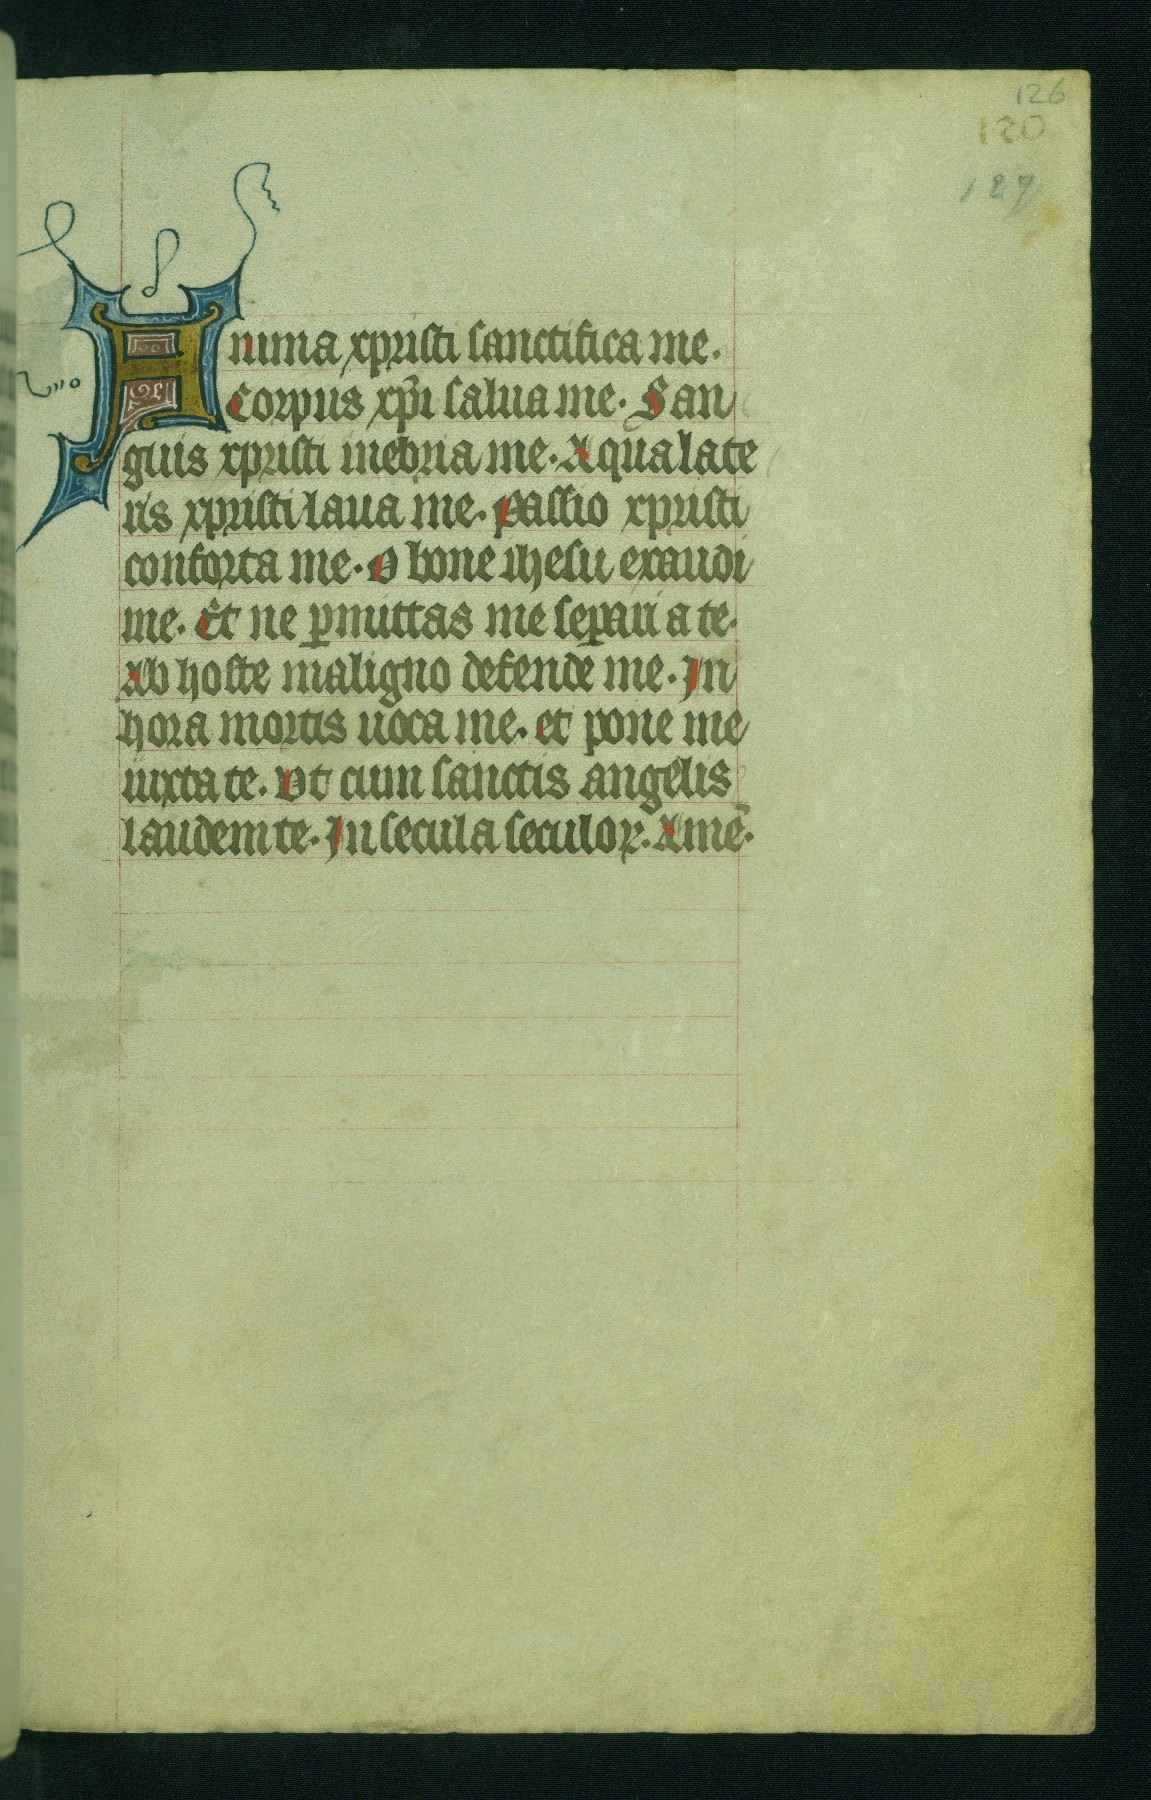 126
120
127
Anima xpristi sanctifica me.
Corpus xp̄i salua me. San
guis xpristi inebria me. Aqua late
ris xpristi laua me. Passio xpristi
conforta me. O bone ihesu exaudi
me. Et ne ꝑmittas me seꝑari a te.
Ab hoste maligno defende me. In
hora mortis uoca me. et pone me
iuxta te. Vt cum sanctis angelis
laudem te. In secula seculoꝝ. Amē.